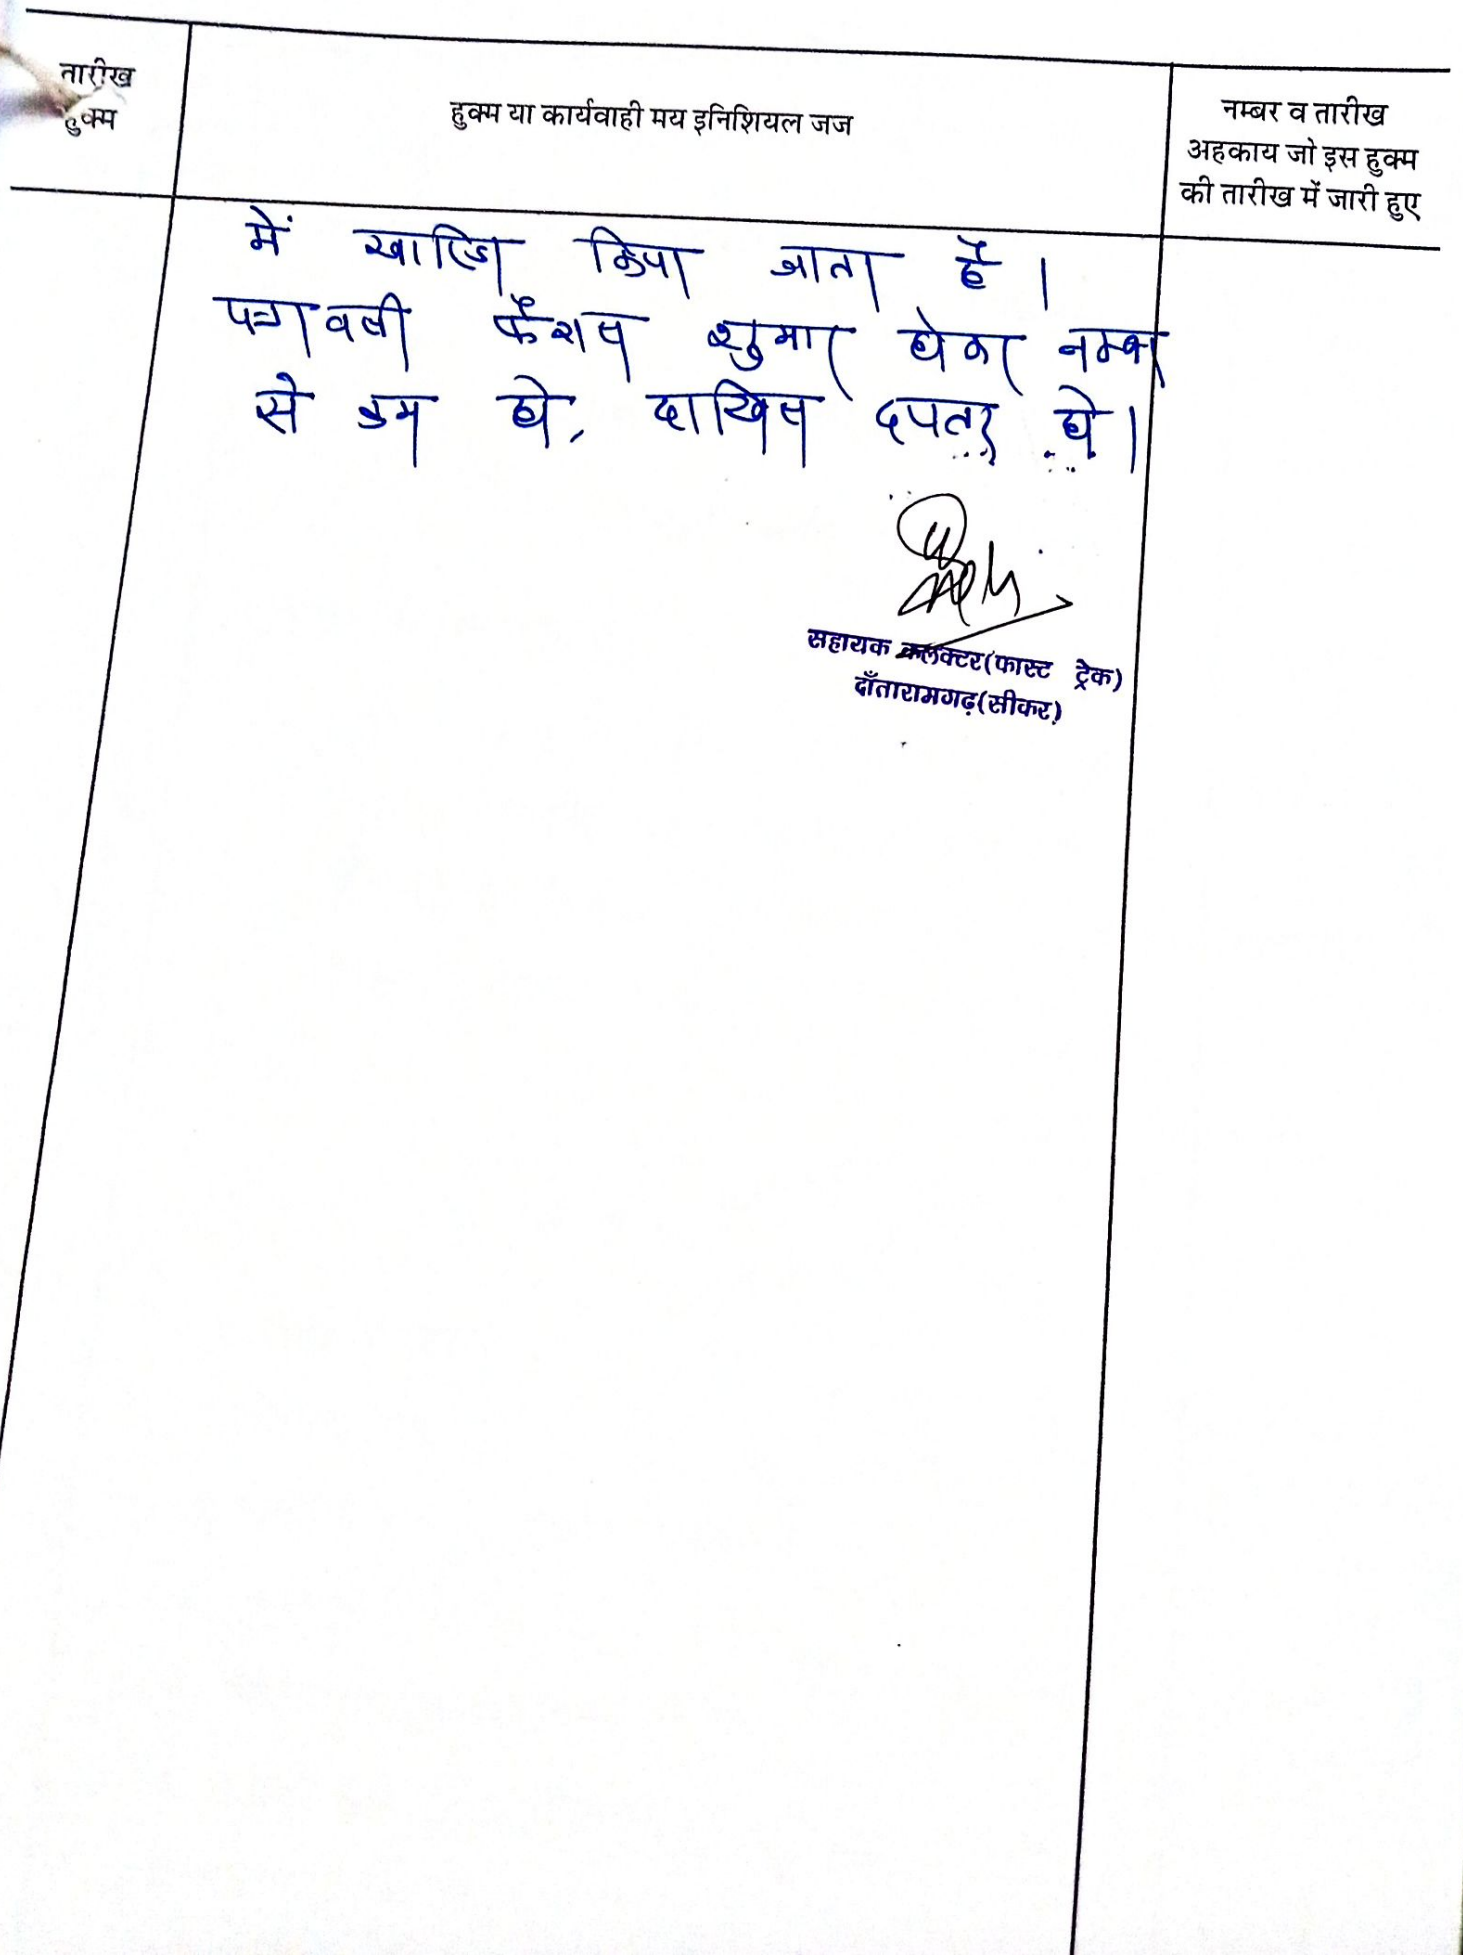 तारीख
हुक्म
हुक्म या कार्यवाही मय इनिशियल जज
नम्बर व तारीख
अहकाय जो इस हुक्म
की तारीख में जारी हुए
में खारिज किया जाता है ।
पत्रावली फैशल शुमार होकर नम्बर
से कम हो, दाखिल दफ्तर हो ।
सहायक कलक्टर(फास्ट ट्रेक)
दाँतारामगढ़(सीकर)